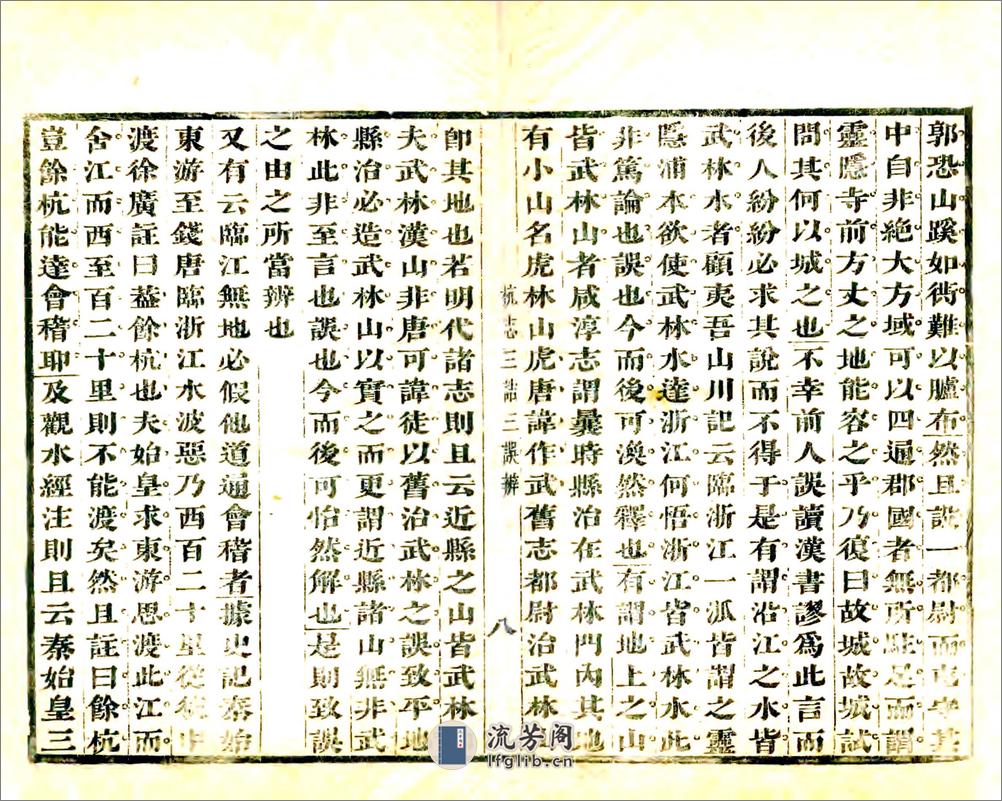 郭恐山蹊如衖難以臚布然且設一都尉而屯守其
中自非絶大方域可以四逼郡國者無所駐足而謂
靈隱寺前方丈之地能容之乎乃復曰故城故城試
問其何以城之也不幸前人誤讀漢書謬爲此言而
後人紛紛必求其說而不得于是有謂沿江之水皆
武林水者顧夷吾山川記云臨浙江一派皆謂之靈
隱浦本欲使武林水達浙江何悟浙江皆武林水此
非篤論也誤也今而後可渙然釋也有謂地上之山
皆武林山者咸淳志謂曩時縣治在武林門內其地
有小山名虎林山虎唐諱作武舊志都尉治武林
杭志三詰三誤辨
八
卽其地也若明代諸志則且云近縣之山皆武林
夫武林漢山非唐可諱徒以舊治武林之誤致平地
縣治必造武林山以實之而更謂近縣諸山無非武
林此非至言也誤也今而後可怡然解也是則致誤
之由之所當辨也
又有云臨江無地必假他道通會稽者據史記秦始
東游至錢唐臨浙江水波惡乃西百二十里從狹中
渡徐廣註曰蓋餘杭也夫始皇求東游思渡此江而
舍江而西至百二十里則不能渡矣然且註曰餘杭
豈餘杭能達會稽耶及觀水經注則且云秦始皇三
流芳阁
lfglib.cn